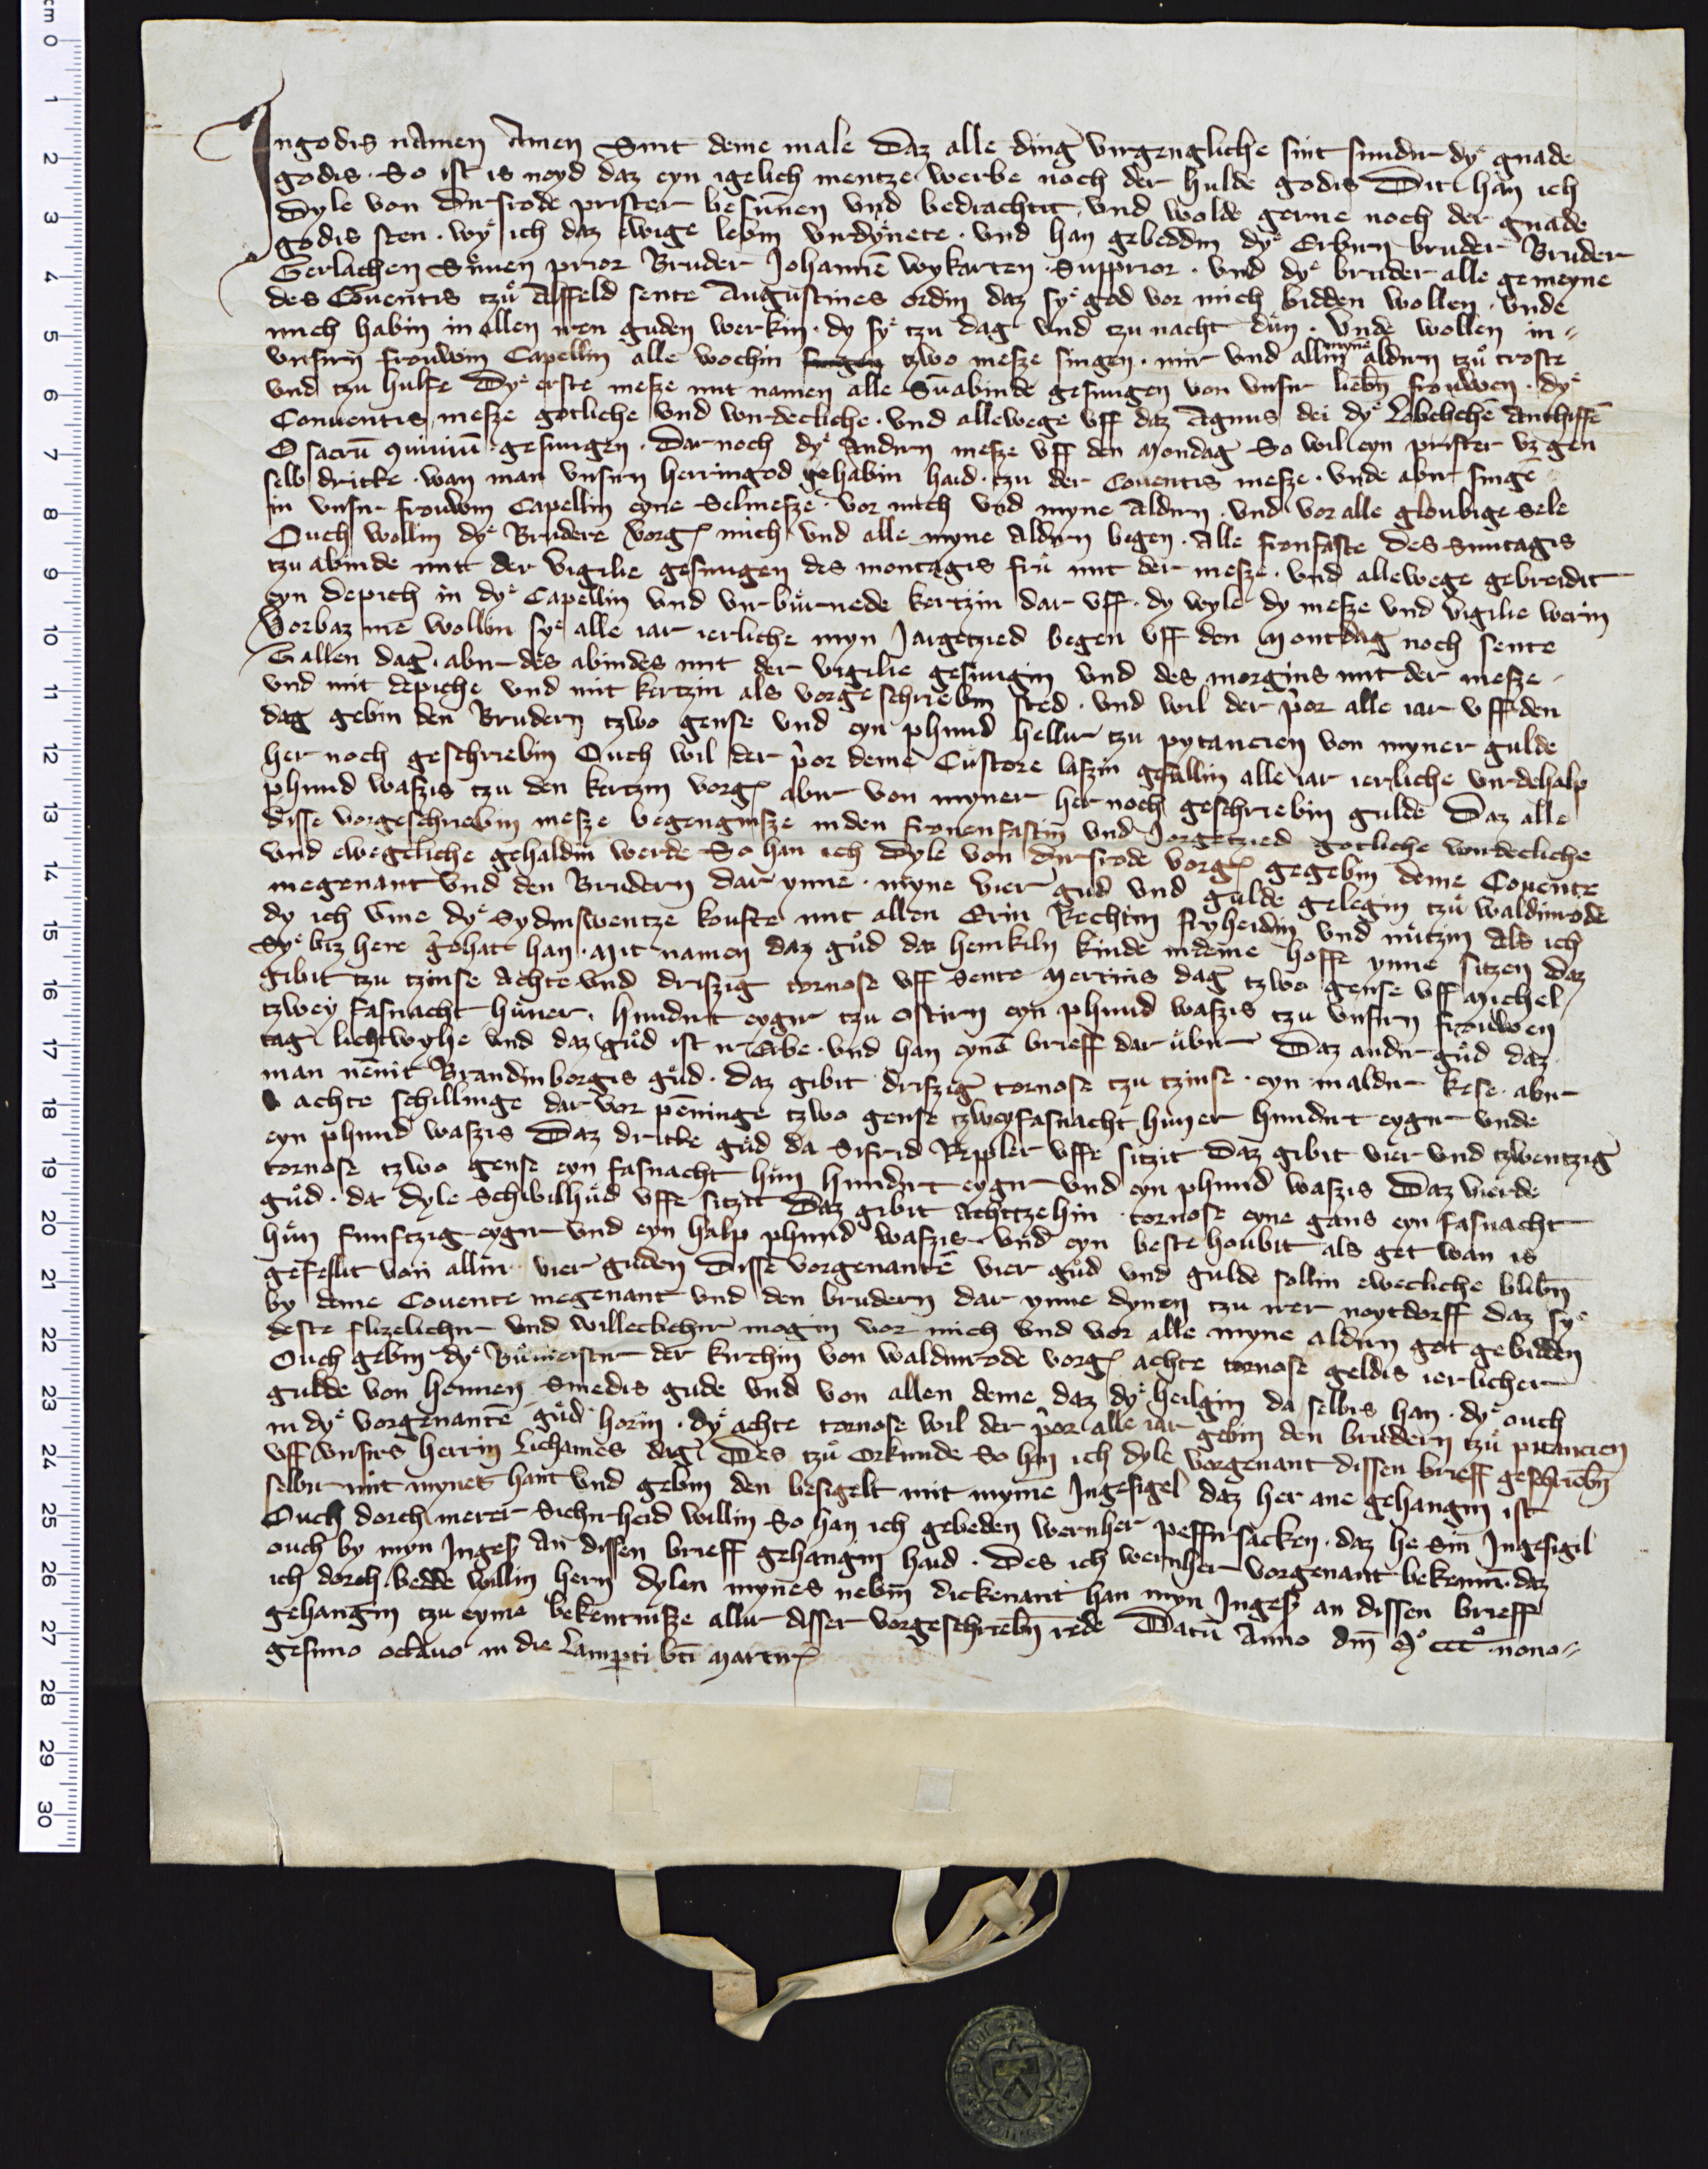 In godis namen Amen Sint deme male Daz alle ding virgengliche sint sundir dy gnade
godis · So ist is noyd daz eyn igelich mentze werbe noch der hulde godis Dit han ich
Dyle von Dirsrode prister besunnen vnd bedrachtit vnd wolde gerne noch der gnade
godis sten · wy ich daz ewige lebin virdynete · vnd han gebeddin dy Erbirn bruder Bruder
Gerlachen prior Bruder Johanne wykarten · Supprior · vnd dy bruder alle gemeyne
des Couentis tzu Alffeld sente Augustines ordin daz sy god vor mich bidden wollen · vnde
mich habin in allen iren guden werkin · dy sy tzu dag vnd tzu nacht dun · vnde wollen in
vnsirn frouwin Capellin alle wochin tzwo mesze singen · mir vnd allin myne aldirn tzu troste
vnd tzu hulfe Dy erste mesze mit namen alle Sunabinde gesungen von vnsir liebn frouwen · dy
Conuentis mesze gotliche vnd wirdecliche · vnd allewege vff daz Agnus dei dy Lobelichen Anthiffen
O sacru Quiuiu gesungen · Dar noch dy Andirn mesze vff den Mondag So wil eyn prister vz gen
selb dritte · wan man vnsirn herringod gehabin haid · tzu der Couentis mesze · vnde abir singe
in vnsir frouwin Capellin eyne Selmesze · vor mich vnd myne Aldirn · vnd vor alle gloubige Sele
Ouch wollin dy Brudere vorg mich vnd alle myne Aldirn begen · Alle fronfaste des Suntagis
tzu abinde mit der vigilie gesungen des montagis fru mit der mesze · vnd allewege gebreidit
eyn depich in dy Capellin vnd vir burnede kertzin dar vff · dy wyle dy mesze vnd vigilie werin
Vorbaz me wollin sy alle iar ierliche myn Jargetzied begen vff den Montdag noch sente
Gallen dag · abir des abindes mit der vigilie gesungin vnd des morgins mit der mesze ·
vnd mit depiche vnd mit kertzin als vorgeschriebin sted · vnd wil der pior alle iar vff den
dag gebin den Brudern tzwo gense vnd eyn phund hellir tzu pytancien von myner gulde
her noch geschriebin Ouch wil der pior deme Custore laszin gefallin alle iar ierliche virdehalp
phund waszis tzu den kertzin vorg abir von myner her noch geschriebin gulde Daz alle
disse vorgeschriebin mesze begengnisze in den fronenfastin vnd Jorgetzied gotliche wirdecliche
vnd ewegcliche gehaldin werde So han ich Dyle von Dirsrode vorg gegebin deme Couente
megenant vnd den Brudern dar ynne · myne vier gud vnd gulde gelegin tzu waldinrode
dy ich vme dy Sydinswentze koufte mit allen Erin Rechtin fryheidin vnd nutzin Als ich
Sy biz here gehatt han · Mit namen daz gud da henkiln kinde in deme hoffe ynne sitzen daz
gibit tzu tzinse Achte vnd driszig tornose vff Sente Mertins dag tzwo gense vff Michel
tzwey fasnacht huner · hundirt eygir tzu ostirn eyn phund waszis tzu vnsirn frouwen
tag lichtwyhe vnd daz gud ist ir Erbe · vnd han eyne brieff dar ubir Daz andir gud daz
man nennit Brandinborgis gud · daz gibit driszig tornose tzu tzinse · eyn maldir kese · abir
achte schillinge dar vor penninge tzwo gense tzwey fasnacht huner hundirt eygir vnde
eyn phund waszis Daz dritte gud da Sifrid Reppler vffe sitzit daz gibit vier vnd tzwentzig
tornose tzwo gense eyn fasnacht hun hundirt eygir vnd eyn phund waszis Daz vierde
gud · da dyle Schibilhud vffe sitzit Daz gibit Achttzehin tornose eyne gans eyn fasnacht
hun funftzig eygir vnd eyn halp phund waszis · vnd eyn beste houbit als get wan is
gefellit von allin vier guden Disse vorgenante vier gud vnd gulde sollin ewecliche blibn
by deme Couente megenant vnd den brudern dar ynne dynen tzu irer noytdorff daz sy
deste flizelichir vnd willeclichir mogin vor mich vnd vor alle myne aldirn got gebidden
Ouch gebin dy Bumeistir der kirchin von waldinrode vorg achte tornose geldis ierlicher
gulde von hennen Smedis gude vnd von allen deme daz dy heilgin da selbis han · dy ouch
in dy vorgenante gud horin · dy achte tornose wil der pior alle iar gebin den brudern tzu pitancien
vff vnsirs herrin Lichames dag Des tzu Orkunde So han ich dyle vorgenant dissen brieff geschriebn
selbir mit myner hant vnd gebin den besigelt mit myme Jngesigel daz her ane gehangin ist
Ouch dorch merer Sichirheid willin So han ich gebeden wernher peffirsacken · daz he Sin Jngesigil
ouch by myn Jnges an dissen brieff gehangin haid · Des ich wernher vorgenant bekenne · daz
ich dorch bedde willin hern dylen mynes nebin dickenant han myn Jnges an dissen brieff
gehangin tzu eyme bekentnisze allir disser vorgeschriebn rede Datu Anno dm M ccc nona
gesimo octauo in die Lamperti bti Martir